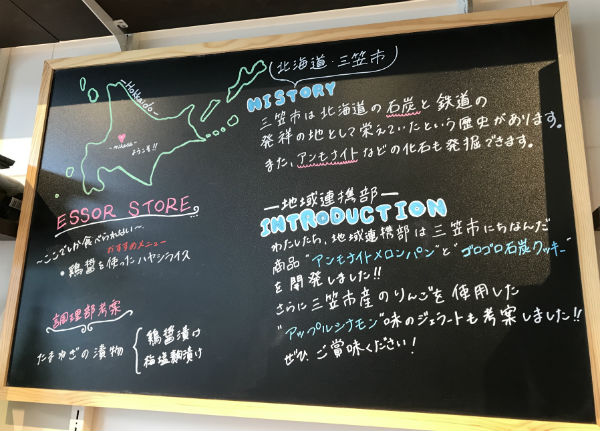 北海道・三笠市
Hokkaido
mikasa
ようこそ!!
HISTORY
三笠市は北海道の石炭と鉄道の
発祥の地として栄えていたという歴史があります。
また、アンモナイトなどの化石も発掘できます。
ESSOR STORE
~ここでしか食べられない~
おすすめメニュー
・鶏醤を使ったハヤシライス
調理部考案
たまねぎの漬物
鶏醤漬け
梅塩麹漬け
ー地域連携部ー
INTRODUCTION
わたしたち、地域連携部は三笠市にちなんだ
商品"アンモナイトメロンパン"と"ゴロゴロ石炭クッキー"
を開発しました!!
さらに三笠市産のりんごを使用した
"アップルシナモン"味のジェラートも考案しました!!
ぜひ、ご賞味ください!